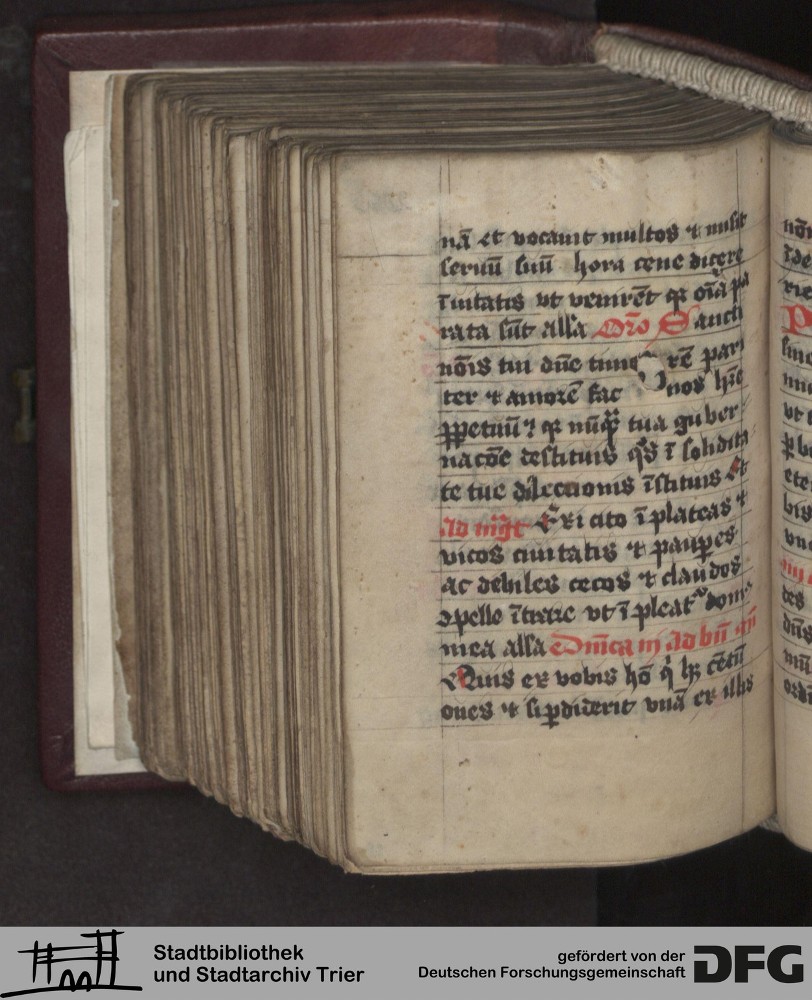 nā et vocauit multos ⁊ misit
seruū suū hora cene dicere
īuitatis vt venirēt qꝛ oīa pa
rata sūt alla Oro Sancti
nōis tui dūe timo rē pari
ter ⁊ amorē fac nos hr̄e
ꝑpetuū ⁊ qꝛ nūqͣ tua guber
nacōe destituis qͦs ī solidita
te tue dileccionis īstituis Et
ad mg̅t Exi cito ī plateas ⁊
vicos ciuitatis ⁊ pauꝑes
ac debiles cecos ⁊ claudos
ꝯpelle ītrare vt ī pleatᷣ dom
mea alla Dm̄ca iij ad bn̄ an̄
Quis ex vobis hō qͥ hꝫ cētū
oues ⁊ si ꝑdiderit vnā ex illis
Stadtbibliothek
und Stadtarchiv Trier
gefördert von der
Deutschen Forschungsgemeinschaft
DFG